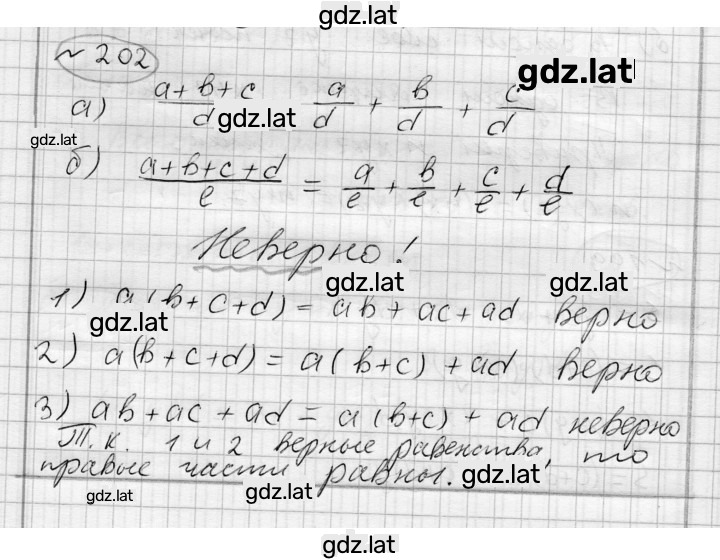 gdz.lat
~ 202
gdz.lat
а) a+b+c/d gdz.lat a/d + b/d + c/d
gdz.lat
б) a+b+c+d/e = a/e + b/e + c/e + d/e
Неверно!
gdz.lat gdz.lat
1) a(b+c+d) = ab + ac + ad верно
gdz.lat
2) a(b+c+d) = a(b+c) + ad верно
3) ab+ac+ad = a(b+c) + ad неверно
Т.к. 1 и 2 верные равенства, то
правые части равны. gdz.lat
gdz.lat gdz.lat
gdz.lat